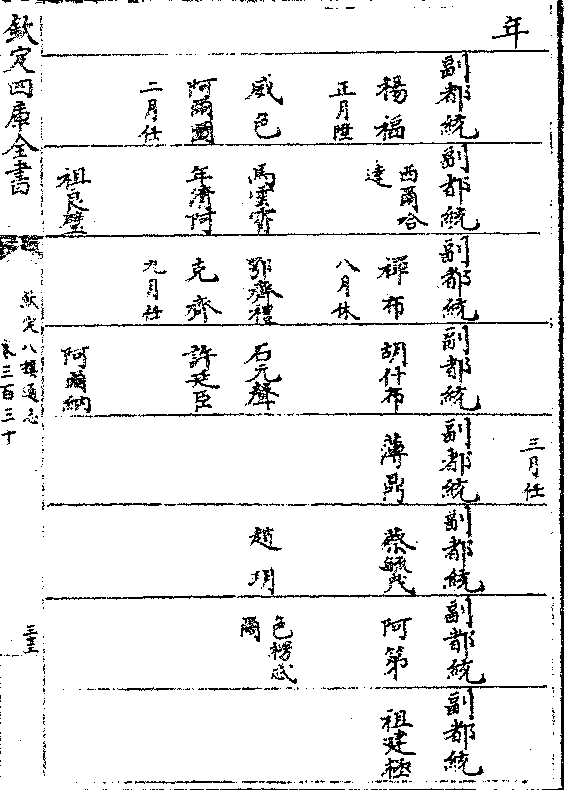 年
三月任
副都統
副都統
副都統
副都統
副都統
副都統
副都統
副都統
楊福
正月陞
西爾哈達
禪布
八月休
胡什布
薄
蔡毓茂
阿第
祖建極
威色
馬雲霄
鄂齊禮
石元聲
趙玥
色楞
阿爾圖
二月任
年濟阿
克齊
九月任
許廷臣
祖良璧
阿爾納
欽定四庫全書
欽定八旗通志
卷三百三十